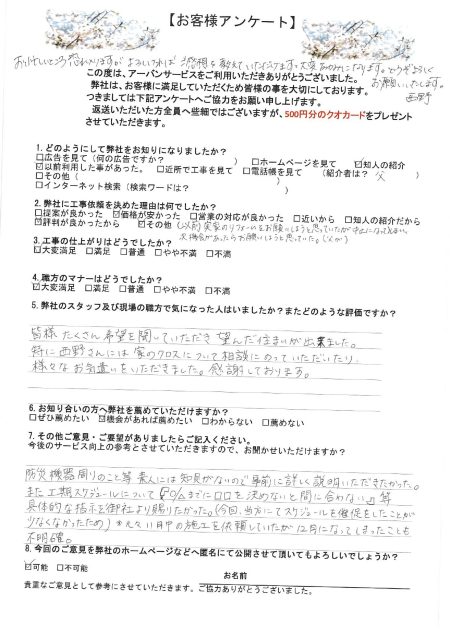 【お客様アンケート】
お忙しいところ恐れ入りますが、よろしければ感想を教えていただけますと大変励みになります。どうぞよろしく
お願いいたします。
西野
この度は、アーバンサービスをご利用いただきありがとうございました。
弊社は、お客様に満足していただくため皆様の事を大切にしております。
つきましては下記アンケートへご協力をお願い申し上げます。
返送いただいた方全員へ些細ではございますが、500円分のクオカードをプレゼント
させていただきます。
1. どのようにして弊社をお知りになりましたか?
□広告を見て(何の広告ですか? ) □ホームページを見て ☑知人の紹介
☑以前利用した事があった。 □近所で工事を見て □電話帳を見て (紹介者は? 父 )
□その他( )
□インターネット検索(検索ワードは? )
2. 弊社に工事依頼を決めた理由は何でしたか?
□提案が良かった ☑価格が安かった □営業の対応が良かった □近いから □知人の紹介だから
☑評判が良かったから ☑その他(以前実家のリフォームをお願いしようと思っていたが中止になってしまい、
次機会があったらお願いしようと思っていた。(父が))
3. 工事の仕上がりはどうでしたか?
☑大変満足 □満足 □普通 □やや不満 □不満
4. 職方のマナーはどうでしたか?
☑大変満足 □満足 □普通 □やや不満 □不満
5. 弊社のスタッフ及び現場の職方で気になった人はいましたか?またどのような評価ですか?
皆様 たくさん希望を聞いていただき 望んだ住まいが出来ました。
特に西野さんには 家のクロスについて相談にのっていただいたり、
様々なお気遣いをいただきました。感謝しております。
6. お知り合いの方へ弊社を薦めていただけますか?
□ぜひ薦めたい ☑機会があれば薦めたい □わからない □薦めない
7. その他ご意見・ご要望がありましたらご記入ください。
今後のサービス向上の参考とさせていただきますので、お聞かせいただけますか?
防災機器周りのこと等 素人には知見がないので事前に詳しく説明いただきたかった。
また工期スケジュールについて「○/○までに□□を決めないと間に合わない」等
具体的な指示を御社より賜りたかった。(今回、当方にてスケジュールを催促をしたことが
少なくなかったため) 11月中の施工を依頼していたが12月になってしまったことも
不明確。
8. 今回のご意見を弊社のホームページなどへ匿名にて公開させて頂いてもよろしいでしょうか?
☑可能 □不可能
お名前
貴重なご意見として参考にさせていただきます。ご協力ありがとうございました。